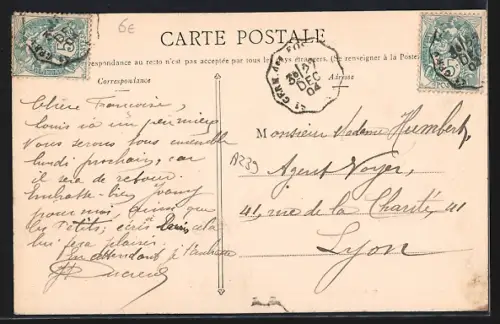 6e
CARTE POSTALE
respondance au recto n'est pas acceptée par tous les pays étrangers. (Se renseigner à la Poste
Correspondance
Adresse
ST GERM. des FOS
27
DEC
04
Chère Françoise,
Louis va un peu mieux
Nous serons tous ensemble
lundi prochain, car
il sera de retour.
Embrasse-bien
pour moi, ainsi que
les Petits; cela
lui fera plaisir.
En attendant je t'embrasse
Monsieur Madame Humbert,
A239
Agent Voyer,
41, rue de la Charité, 41
Lyon